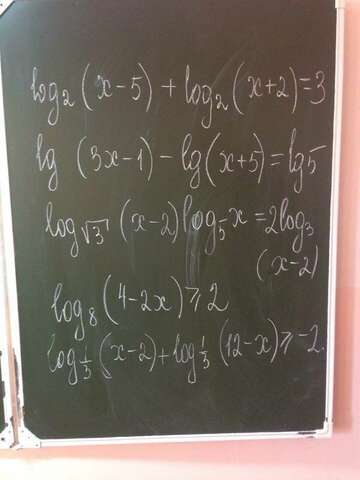 log₂ (x-5) + log₂ (x+2) = 3
lg (3x-1) - lg(x+5) = lg5
log√3 (x-2) log₅x = 2log₃
(x-2)
log₈ (4-2x) ⩾ 2
log⅓ (x-2) + log⅓ (12-x) ⩾ -2.